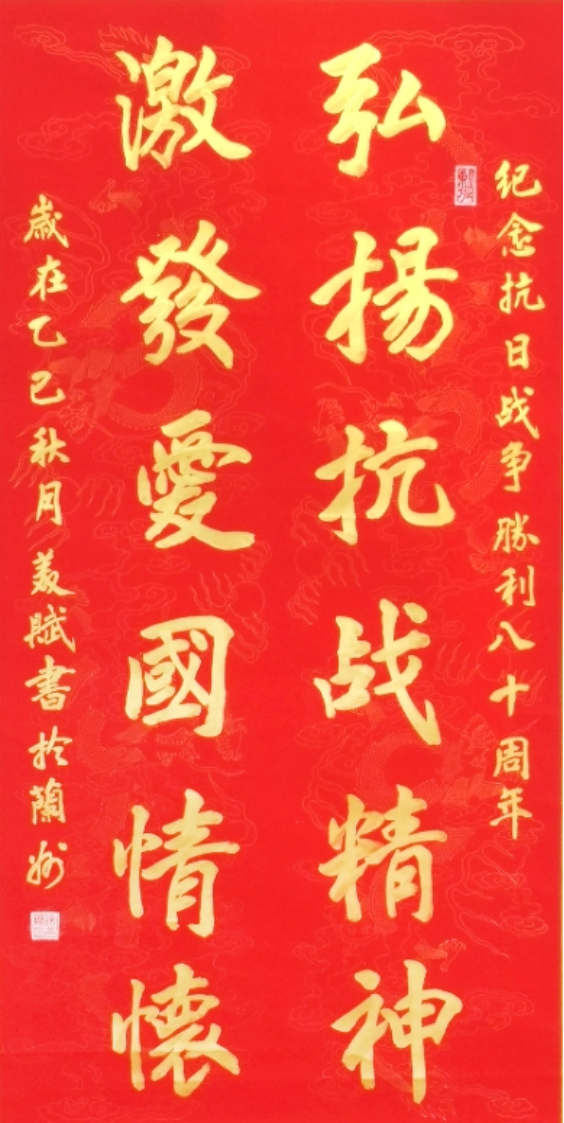 纪念抗日战争勝利八十周年
弘揚抗战精神
激發愛國情懐
歲在乙巳秋月美賦書於蘭州